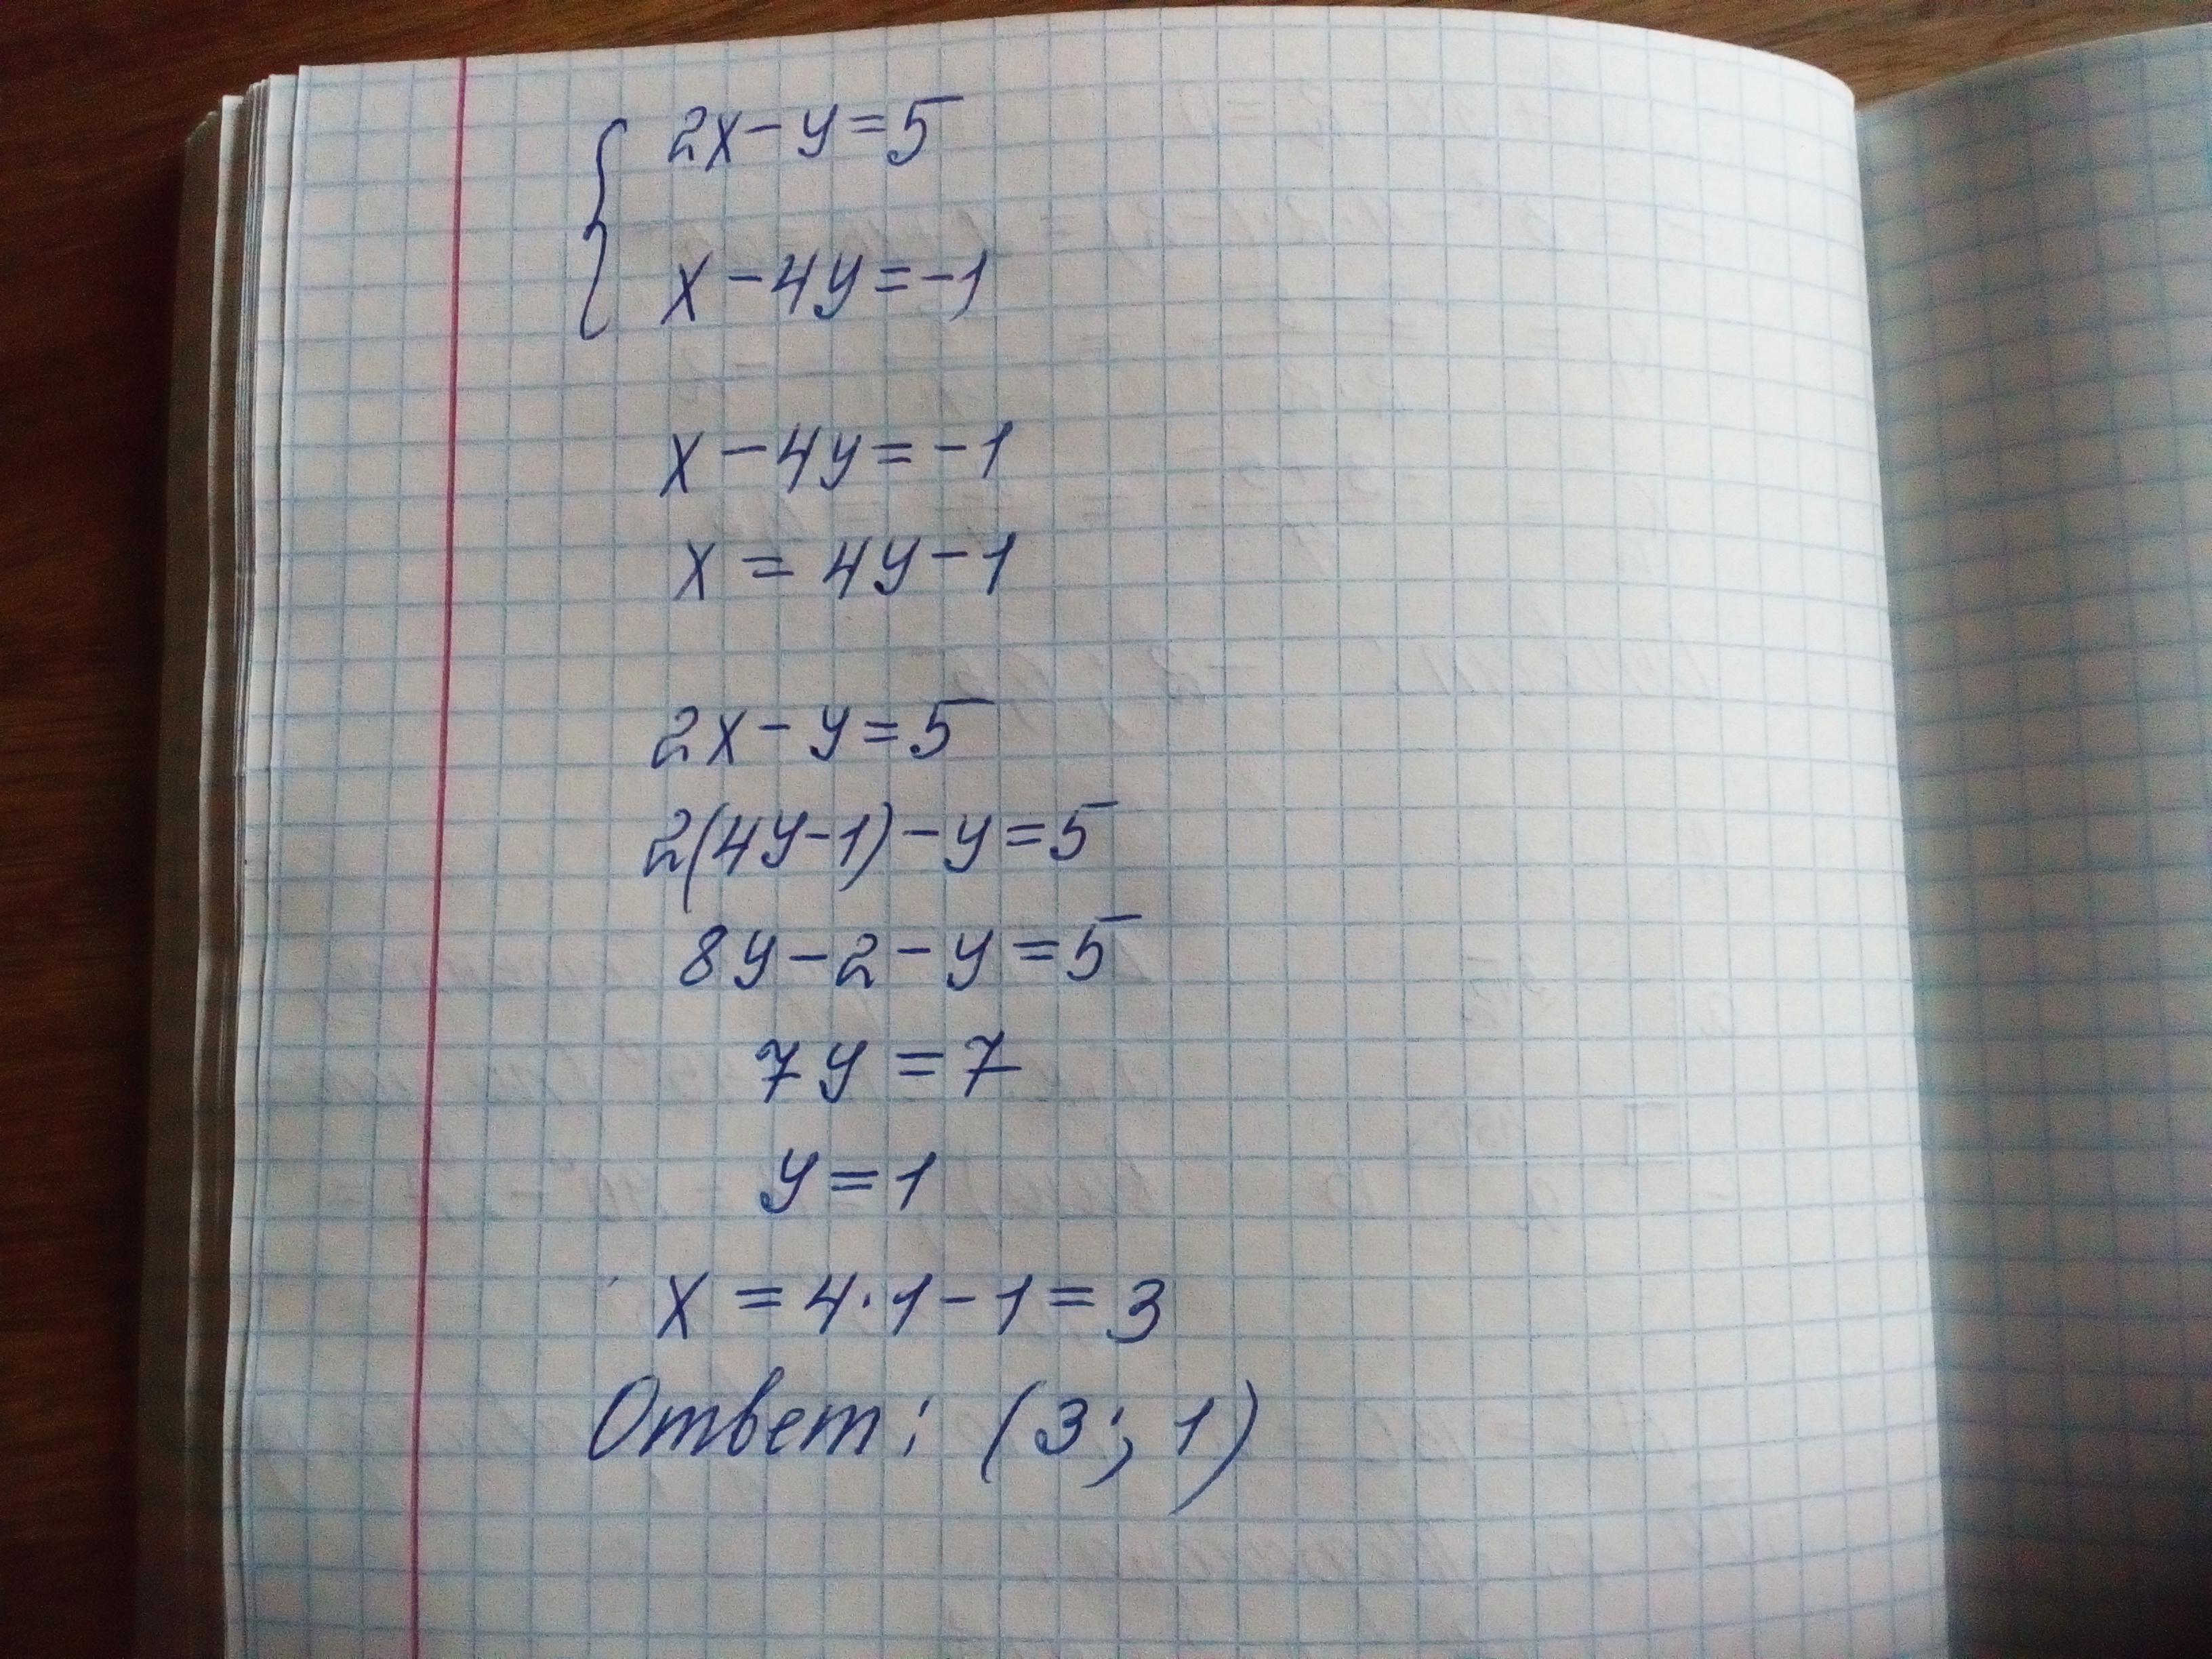 2x-y=5
x-4y=-1
x-4y=-1
x=4y-1
2x-y=5
2(4y-1)-y=5
8y-2-y=5
7y=7
y=1
x=4·1-1=3
Ответ: (3; 1)